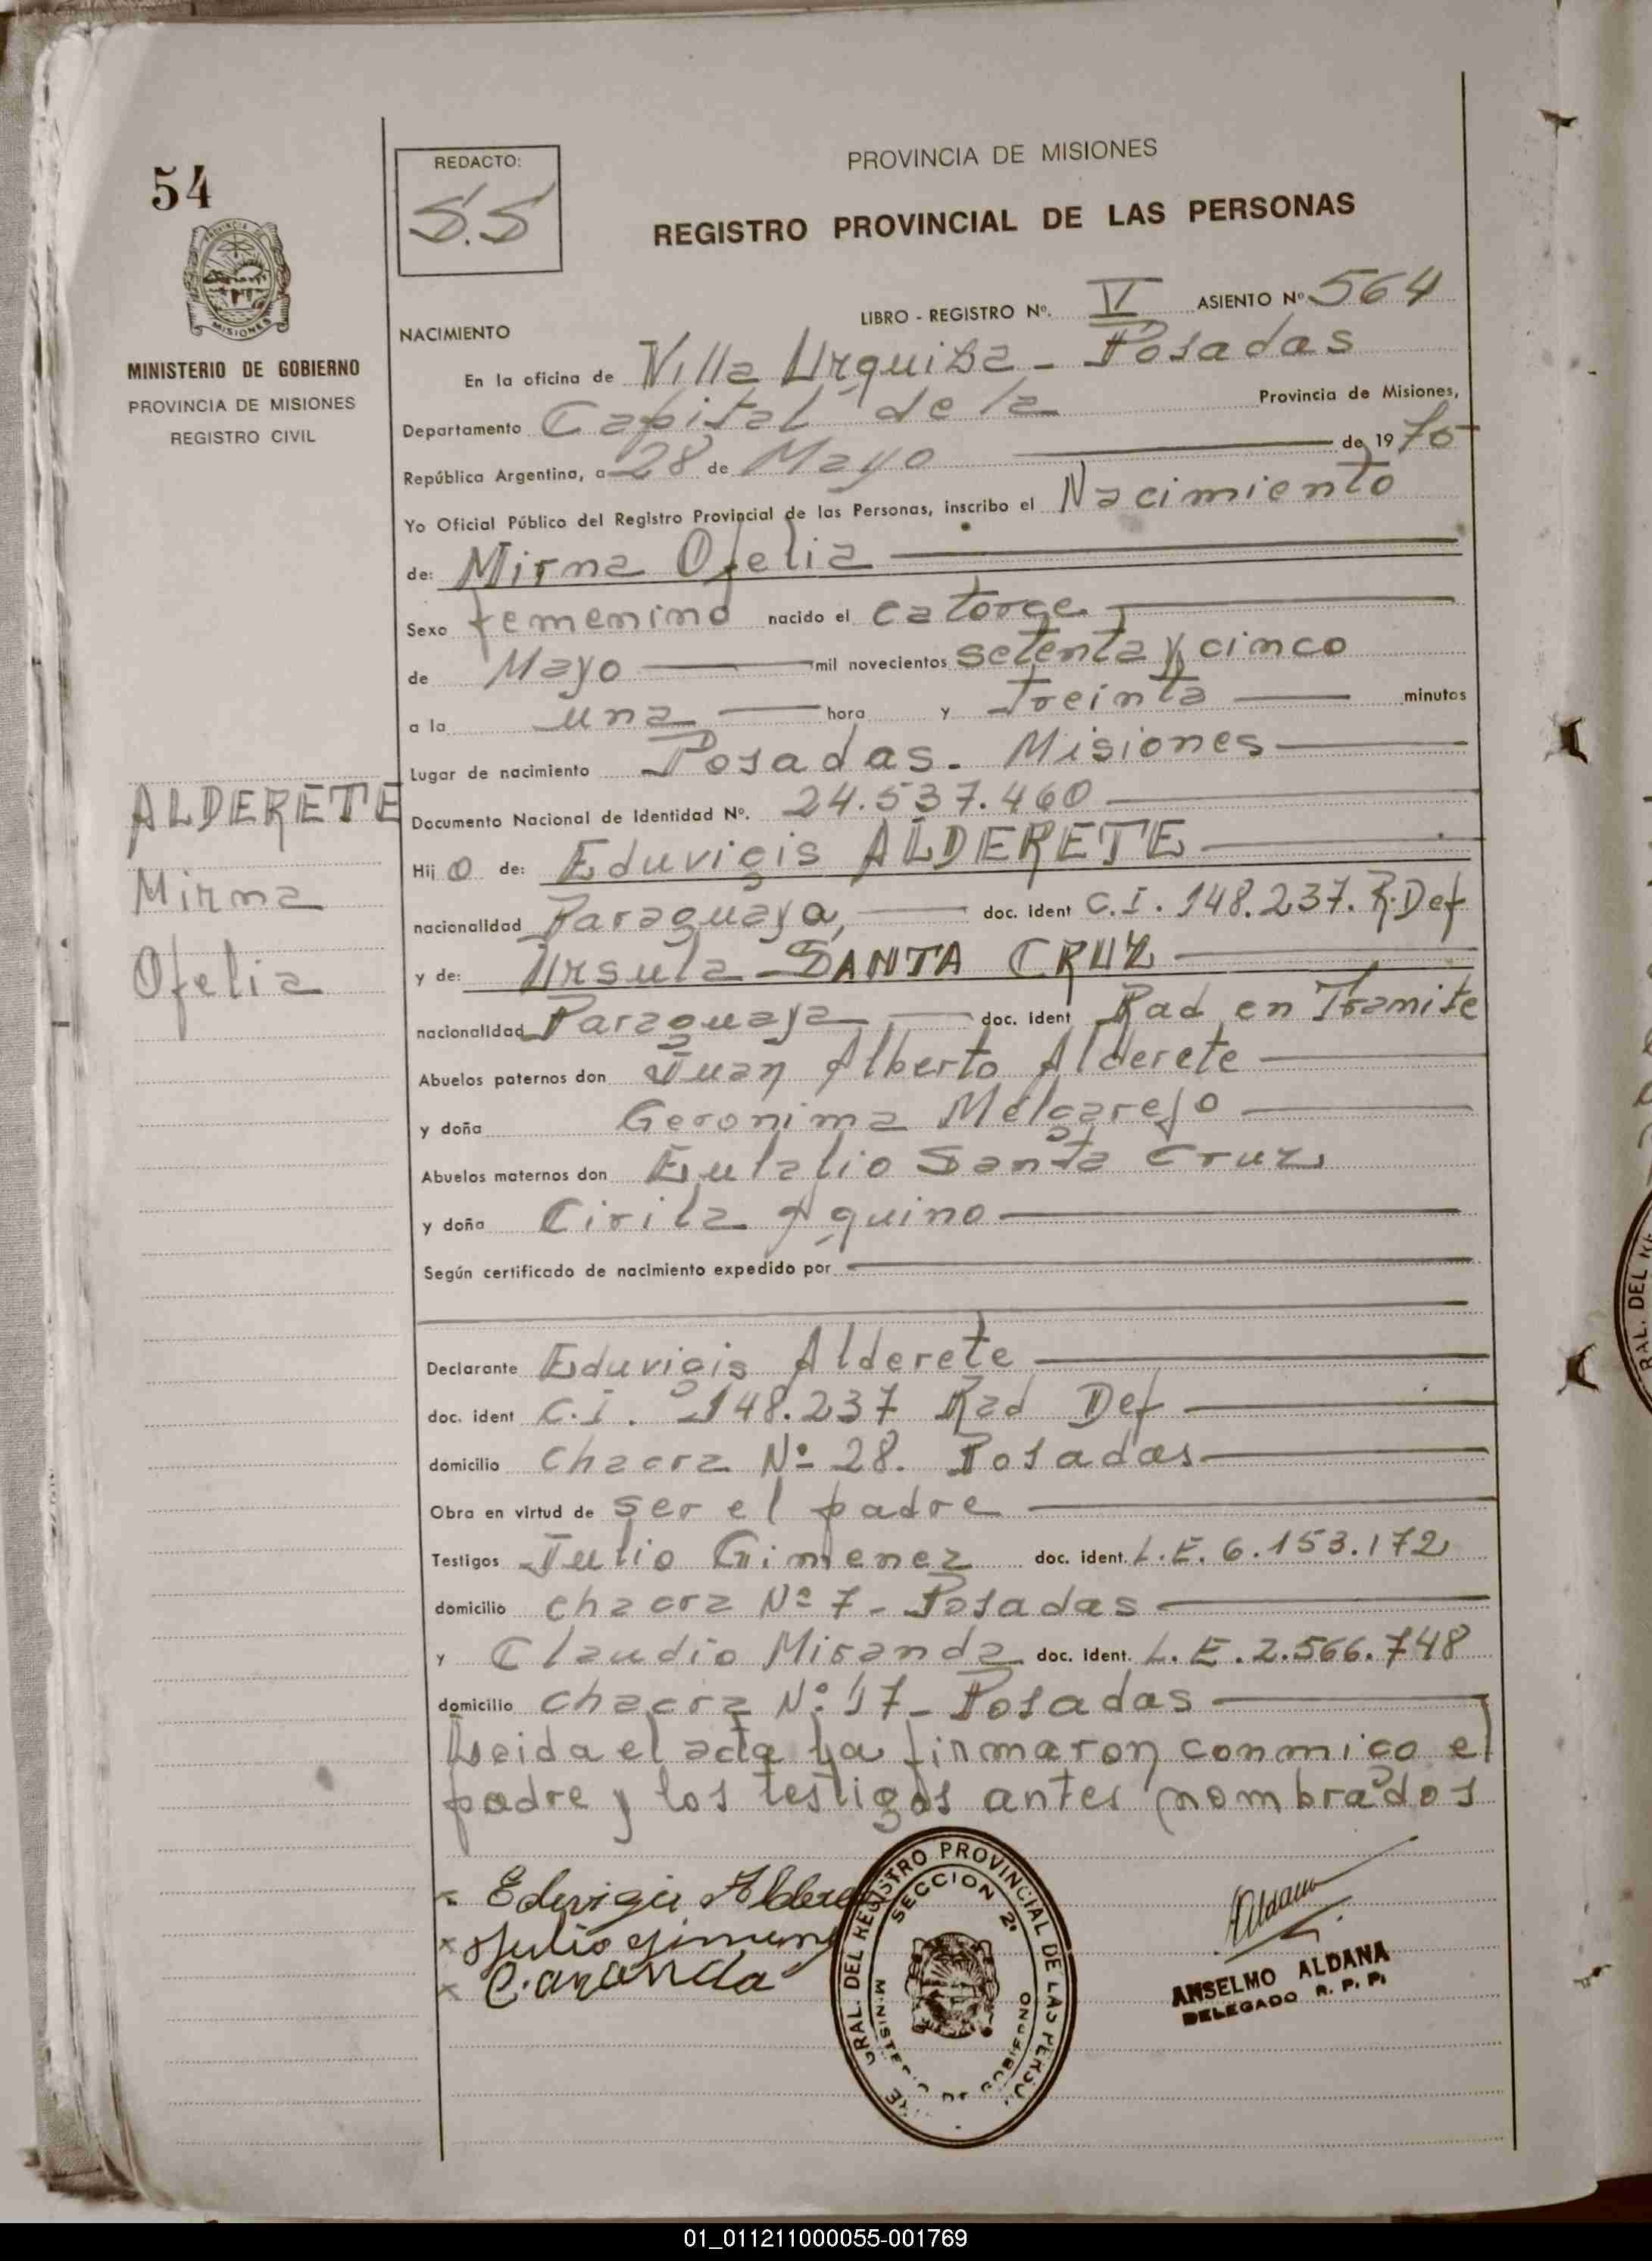 54
REDACTO:
S.S
PROVINCIA DE MISIONES
REGISTRO PROVINCIAL DE LAS PERSONAS
PROVINCIA DE
MISIONES
MINISTERIO DE GOBIERNO
PROVINCIA DE MISIONES
REGISTRO CIVIL
LIBRO - REGISTRO Nº. V ASIENTO Nº 564
NACIMIENTO
En la oficina de Villa Urquiza - Posadas
Departamento Capital de la Provincia de Misiones,
República Argentina, a 28 de Mayo de 19 75
Yo Oficial Público del Registro Provincial de las Personas, inscribo el Nacimiento
de: Mirna Ofelia
Sexo femenino nacido el catorce
de Mayo mil novecientos setenta y cinco
a la una hora y treinta minutos
Lugar de nacimiento Posadas. Misiones
ALDERETE
Mirna
Ofelia
Documento Nacional de Identidad Nº. 24.537.460
Hij o de: Eduvigis ALDERETE
nacionalidad Paraguaya, doc. ident C.I. 148.237. R.Def
y de: Ursula SANTA CRUZ
nacionalidad Paraguaya doc. ident Rad en Tramite
Abuelos paternos don Juan Alberto Alderete
y doña Geronima Melgarejo
Abuelos maternos don Eulalio Santa Cruz
y doña Cirila Aquino
Según certificado de nacimiento expedido por
Declarante Eduvigis Alderete
doc. ident C.I. 148.237 Rad Def
domicilio chacra Nº 28. Posadas
Obra en virtud de ser el padre
Testigos Julio Gimenez doc. ident. L.E. 6.153.172
domicilio chacra Nº 7 - Posadas
y Claudio Miranda doc. ident. L.E. 2.566.748
domicilio chacra Nº 17 - Posadas
Leida el acta la firmaron conmigo el
padre y los testigos antes nombrados
x Eduvigis
x Julio
x
GRAL. DEL REGISTRO PROVINCIAL DE LAS PERSO
SECCION 2ª
MINISTERIO DE GOBIERNO
Aldana
ANSELMO ALDANA
DELEGADO R. P. P.
RAL. DEL RE
01_011211000055-001769